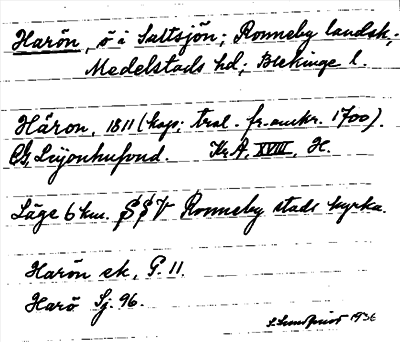 Harön, ö i Saltsjön; Ronneby landsk.;
Medelstads hd; Blekinge l.
Häron, 1811 (kop; tral. fr. omkr. 1700).
CG Leijonhufvud. Kr.A. XVIII, H.
Läge 6 km. SSV Ronneby stads kyrka.
Harön ek. G. 11.
Harö Sj. 96.
1936